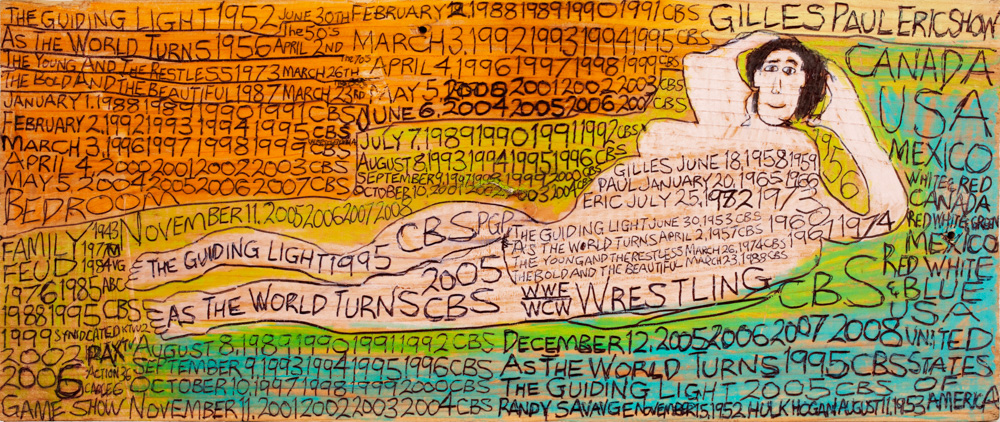 THE GUIDING LIGHT 1952 JUNE 30TH
The 50's
AS THE WORLD TURNS 1956 APRIL 2ND
THE YOUNG AND THE RESTLESS 1973 MARCH 26TH
The 70's
THE BOLD AND THE BEAUTIFUL 1987 MARCH 23RD
JANUARY 1. 1988 1989 1990 1991 CBS
FEBRUARY 2. 1992 1993 1994 1995 CBS
MARCH 3. 1996 1997 1998 1999 CBS
APRIL 4. 2000 2001 2002 2003 CBS
MAY 5. 2004 2005 2006 2007 CBS
BEDROOM
FEBRUARY 2. 1988 1989 1990 1991 CBS
MARCH 3. 1992 1993 1994 1995 CBS
APRIL 4. 1996 1997 1998 1999 CBS
MAY 5. 2000 2001 2002 2003 CBS
JUNE 6. 2004 2005 2006 2007 CBS
JULY 7. 1989 1990 1991 1992 CBS
AUGUST 8. 1993 1994 1995 1996 CBS
SEPTEMBER 9. 1997 1998 1999 2000 CBS
OCTOBER 10. 2001 2002 2003 2004 CBS
NOVEMBER 11. 2005 2006 2007 2008
GILLES PAUL ERIC SHOW
CANADA
USA
MEXICO
WHITE & RED
CANADA
RED WHITE & GREEN
MEXICO
RED WHITE
& BLUE
USA
UNITED
STATES
OF
AMERICA
1956
GILLES JUNE 18, 1958 1959
PAUL JANUARY 20, 1965 1966
ERIC JULY 25, 1982 1973
THE GUIDING LIGHT JUNE 30, 1953 CBS 1960
AS THE WORLD TURNS APRIL 2, 1957 CBS 1961 1974
THE YOUNG AND THE RESTLESS MARCH 26, 1974 CBS
THE BOLD AND THE BEAUTIFUL MARCH 23, 1988 CBS
WWE
WCW
WRESTLING
CBS
CBS
THE GUIDING LIGHT 1995
2005
AS THE WORLD TURNS CBS
FAMILY 1943
FEUD 1984 VG
1976 1985 ABC
1988 1995 CBS
1999 SYNDICATED KTVU2
2002 PAX
2006 ACTION 36
CABLE 6
GAME SHOW
AUGUST 8. 1989 1990 1991 1992 CBS
SEPTEMBER 9. 1993 1994 1995 1996 CBS
OCTOBER 10. 1997 1998 1999 2000 CBS
NOVEMBER 11. 2001 2002 2003 2004 CBS
DECEMBER 12. 2005 2006 2007 2008
AS THE WORLD TURNS 1995 CBS
THE GUIDING LIGHT 2005 CBS
RANDY SAVAVGE NOVEMBER 15, 1952 HULK HOGAN AUGUST 11, 1953